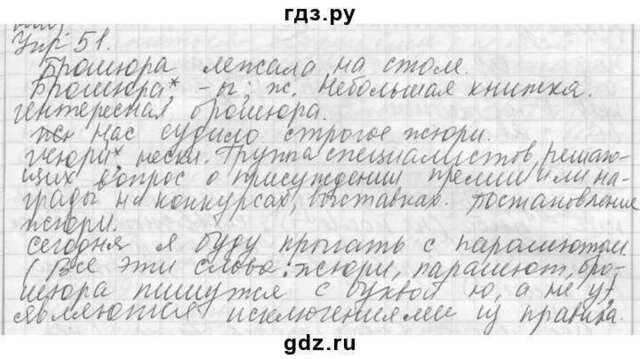 гдз.ру
Упр 51.
Брошюра лежала на столе.
Брошюра* -ы; ж. Небольшая книжка.
интересная брошюра.
нас судило строгое жюри.
жюри* нескл. Группа специалистов, решаю-
щих вопрос о присуждении премии или на-
грады на конкурсах, выставках. Постановление
жюри.
Сегодня я буду прыгать с парашютом
(Все эти слова: жюри, парашют, бро-
шюра пишутся с буквой ю, а не у),
являются исключениями из правила.
gdz.ru